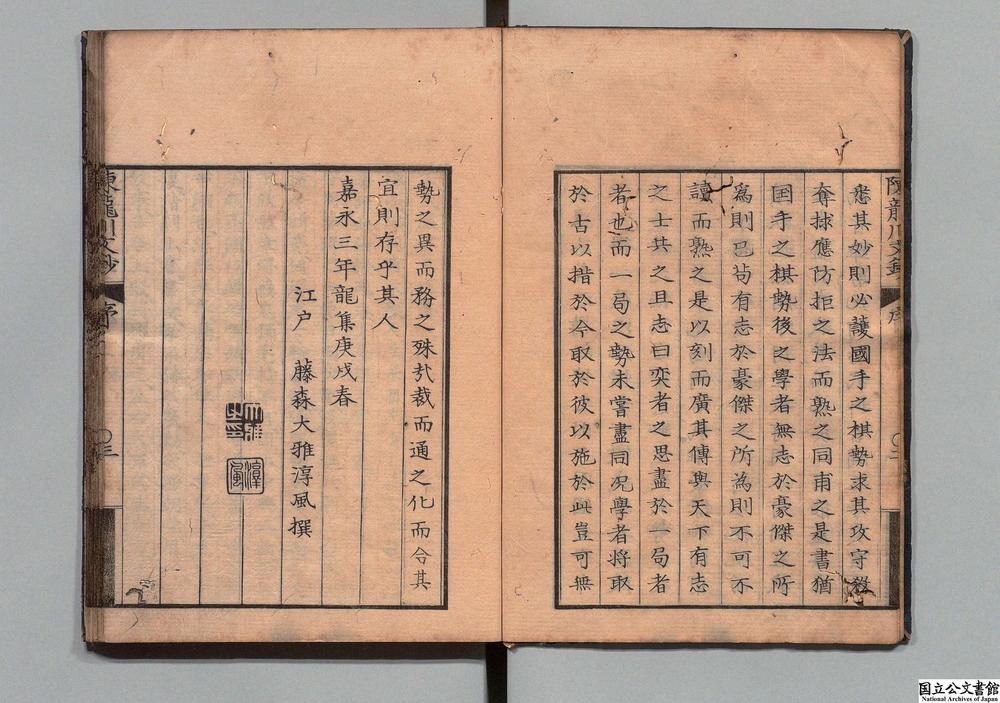 陳龍川文鈔 序
悉其妙則必護國手之棋勢求其攻守殺
奪捄應防拒之法而熟之同甫之是書猶
国手之棋勢後之學者無志於豪傑之所
為則已苟有志於豪傑之所為則不可不
讀而熟之是以刻而廣其傳與天下有志
之士共之且志曰奕者之思盡於一局者
者也而一局之勢未嘗盡同况學者将取
於古以措於今取於彼以施於此豈可無
勢之異而務之殊㢤裁而通之化而合其
宜則存乎其人
嘉永三年龍集庚戌春
江戸 藤森大雅淳風撰
陳龍川文鈔 序 〇三
国立公文書館
National Archives of Japan